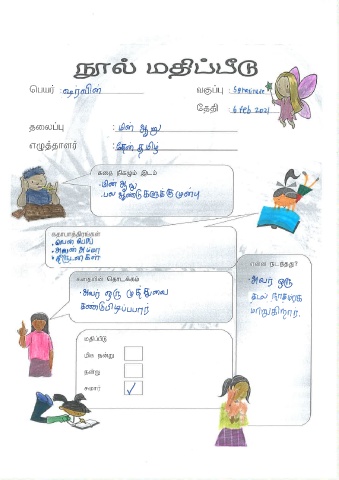 நூல் மதிப்பீடு
பெயர் : ஷரவின்
வகுப்பு :
தேதி : 6 feb 2021
தலைப்பு : மின் ஆலு
எழுத்தாளர் : தேன் தமிழ்
கதை நிகழும் இடம்
பல ஆண்டுகளுக்கு முன்பு
கதாபாத்திரங்கள்
அவன் அப்பா
திருடர்கள்
கதையின் தொடக்கம்
அவர் ஒரு முத்துவை
கண்டுபிடிப்பார்
என்ன நடந்தது?
அவர் ஒரு
மாறுகிறார்.
மதிப்பீடு
மிக நன்று
நன்று
சுமார் ✓